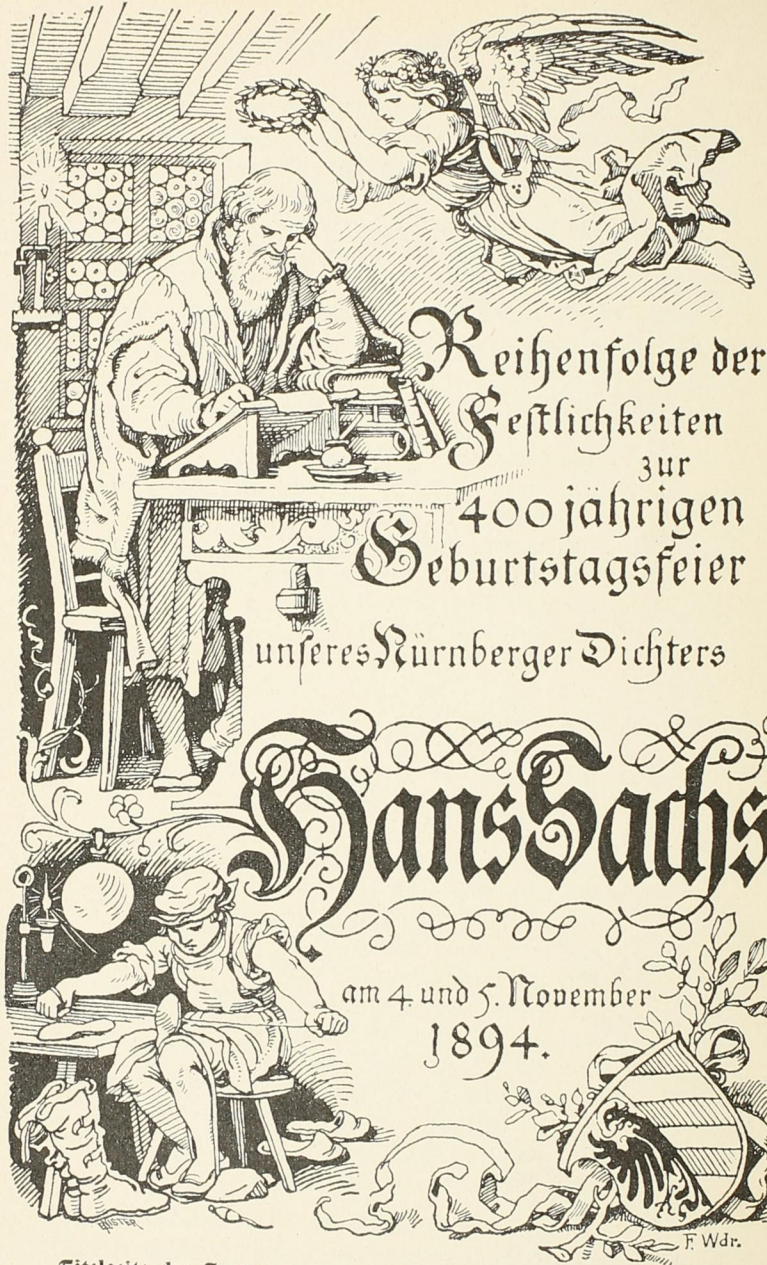 Reihenfolge der
Festlichkeiten
zur
400 jährigen
Geburtstagsfeier
unseres Nürnberger Dichters
Hans Sachs
am 4. und 5. November
1894.
F. Wdr.